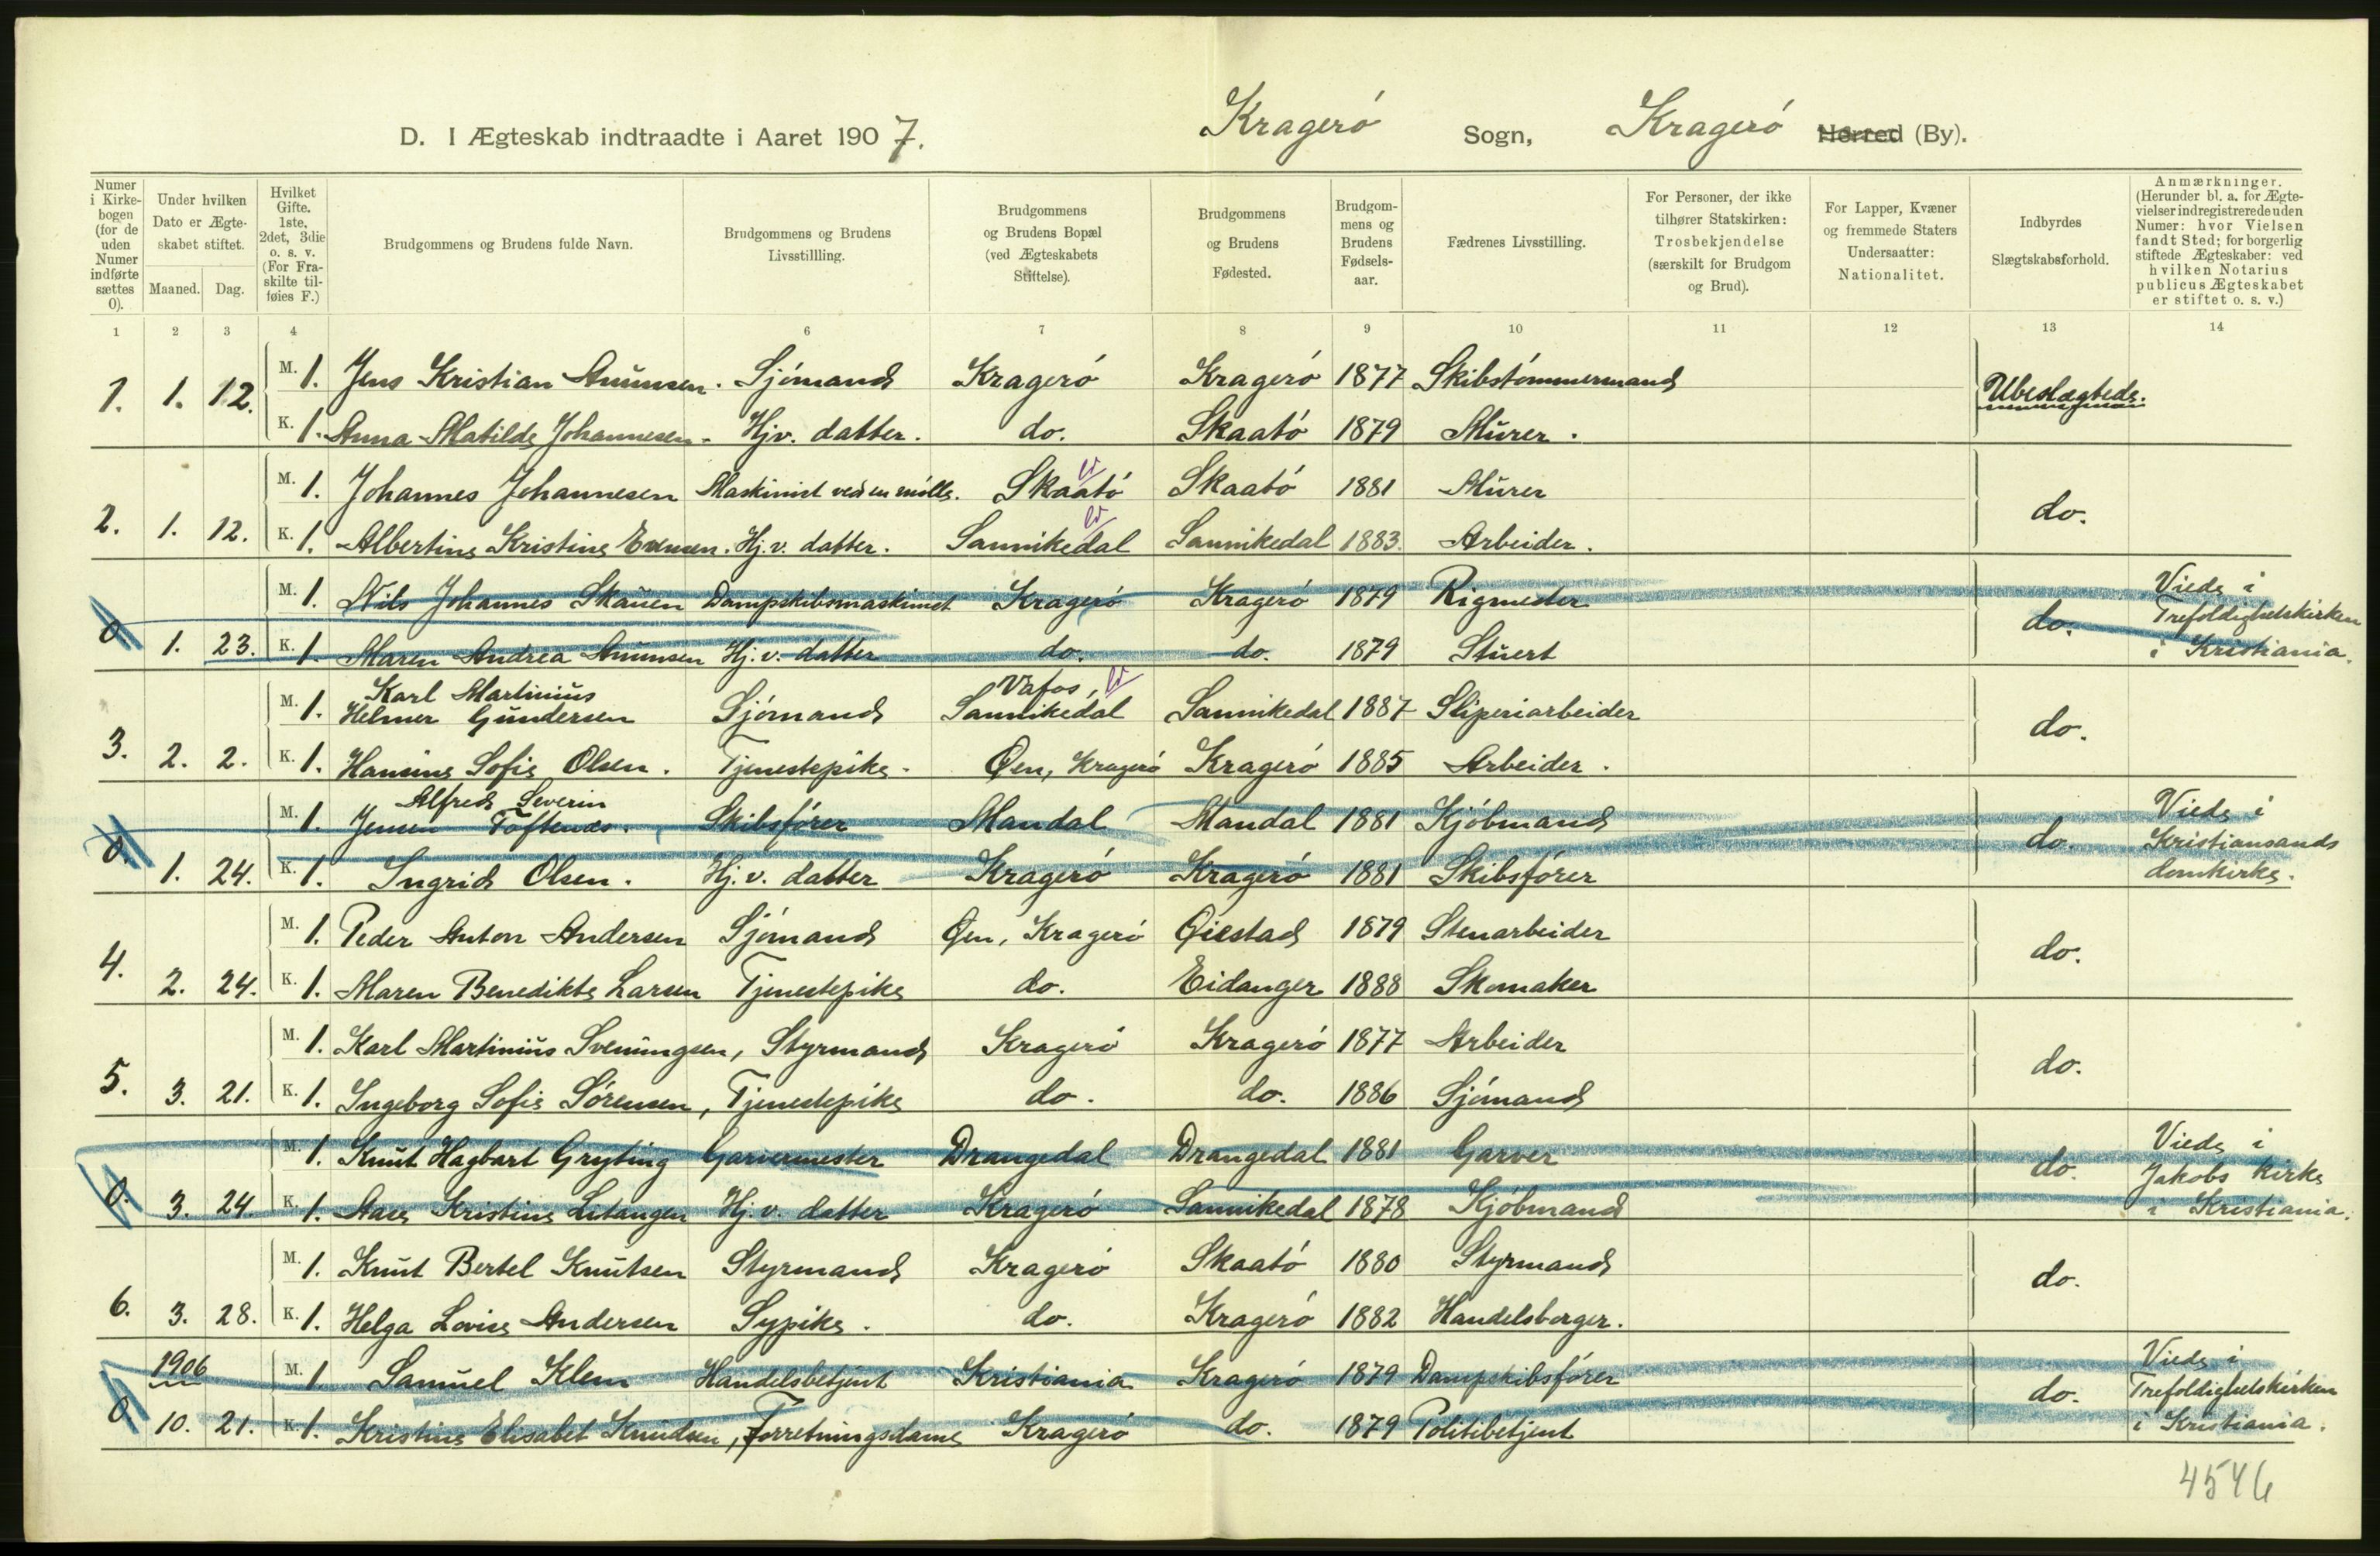 D. I Ægteskab indtraadte i Aaret 1907. Kragerö Sogn, Kragerö Herred (By).
Numer i Kirkebogen (for de uden Numer indførte sættes 0).
Under hvilken Dato er Ægteskabet stiftet.
Maaned. Dag.
Hvilket Gifte. 1ste, 2det, 3die o. s. v. (For Fraskilte tilføies F.)
Brudgommens og Brudens fulde Navn.
Brudgommens og Brudens Livsstillling.
Brudgommens og Brudens Bopæl (ved Ægteskabets Stiftelse).
Brudgommens og Brudens Fødested.
Brudgommens og Brudens Fødselsaar.
Fædrenes Livsstilling.
For Personer, der ikke tilhører Statskirken: Trosbekjendelse (særskilt for Brudgom og Brud).
For Lapper, Kvæner og fremmede Staters Undersaatter: Nationalitet.
Indbyrdes Slægtskabsforhold.
Anmærkninger. (Herunder bl. a. for Ægtevielser indregistrerede uden Numer: hvor Vielsen fandt Sted; for borgerlig stiftede Ægteskaber: ved hvilken Notarius publicus Ægteskabet er stiftet o. s. v.)
1 2 3 4 6 7 8 9 10 11 12 13 14
M. 1. Jens Kristian Anunsen. Sjömand Kragerö Kragerö 1877 Skibstömmermand
1. 1. 12. Ubeslægtede.
K. 1. Anna Matilde Johannesen. Hjv. datter. do. Skaatö 1879 Murer.
M. 1. Johannes Johannesen Maskinist ved en mölle. Skaatö Skaatö 1881 Murer
2. 1. 12. do.
K. 1. Albertine Kristine Evensen. Hj. v. datter. Sannikedal Sannikedal 1883. Arbeider.
M. 1. Nils Johannes Skauen Dampskibsmaskinist Kragerö Kragerö 1879 Rigmester Viede i
0 do. Trefoldighetskirken
1. 23. K. 1. Maren Andrea Anunsen Hj. v. datter do. do. 1879 Stuert i Kristiania.
Karl Martinius Vafos,
M. 1. Helmer Gundersen Sjömand Sannikedal Sannikedal 1887 Sliperiarbeider
3. 2. 2. do.
K. 1. Hansine Sofie Olsen. Tjenestepike. Öen, Kragerö Kragerö 1885 Arbeider.
Alfred Severin Viede i
M. 1. Jensen Toftenæs. Skibsförer Mandal Mandal 1881 Kjöbmand
0. do. Kristiansands
1. 24. K. 1. Ingrid Olsen. Hj. v. datter Kragerö Kragerö 1881 Skibsförer domkirke.
M. 1. Peder Anton Andersen Sjömand Öen, Kragerö Öiestad 1879 Stenarbeider
4. do.
2. 24. K. 1. Maren Benedikte Larsen Tjenestepike do. Eidanger 1888 Skomaker
M. 1. Karl Martinius Sveningsen, Styrmand Kragerö Kragerö 1877 Arbeider
5. do.
3. 21. K. 1. Ingeborg Sofie Sörensen, Tjenestepike do. do. 1886 Sjömand
M. 1. Knut Hagbart Gryting Garvermester Drangedal Drangedal 1881 Garver Viede i
0. do. Jakobs kirke
3. 24. K. 1. Aase Kristine Litangen Hj. v. datter Kragerö Sannikedal 1878 Kjöbmand i Kristiania.
M. 1. Knut Bertel Knutsen Styrmand Kragerö Skaatö 1880 Styrmand
6. do.
3. 28. K. 1. Helga Lovise Andersen Sypike. do. Kragerö 1882 Handelsborger.
1906 Viede i
M. 1 Samuel Klem Handelsbetjent Kristiania Kragerö 1879 Dampskibsförer
0 do. Trefoldighetskirken
10. 21. K. 1. Kristine Elisabet Knudsen, Forretningsdame Kragerö do. 1879 Politibetjent i Kristiania.
4546